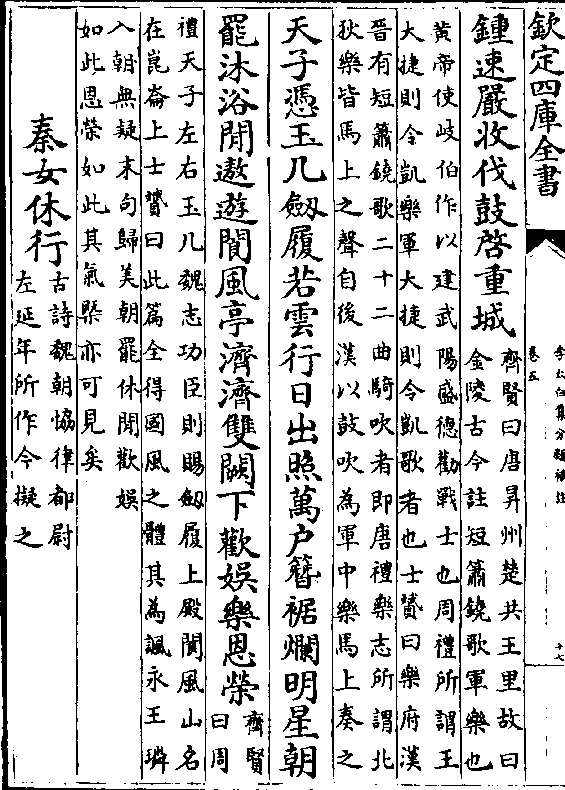 欽定四庫全書
李太白集分類補註
卷五
十七
鍾速嚴妝伐鼓啓重城
齊賢曰唐昇州楚共王里故曰
金陵古今註短簫鐃歌軍樂也
黄帝使岐伯作以建武陽盛德勸戰士也周禮所謂王
大捷則令凱樂軍大捷則令凱歌者也士贇曰樂府漢
晉有短簫鐃歌二十二曲騎吹者即唐禮樂志所謂北
狄樂皆馬上之聲自後漢以鼓吹為軍中樂馬上奏之
天子憑玉几劔履若雲行日出照萬户簪裾爛明星朝
罷沐浴閒遨遊閬風亭濟濟雙闕下歡娛樂恩榮
齊賢
曰周
禮天子左右玉几魏志功臣則賜劔履上殿閬風山名
在崑崙上士贇曰此篇全得國風之體其為諷永王璘
入朝無疑末句歸美朝罷休閒歡娛
如此恩榮如此其氣槩亦可見矣
秦女休行
古詩魏朝協律都尉
左延年所作今擬之